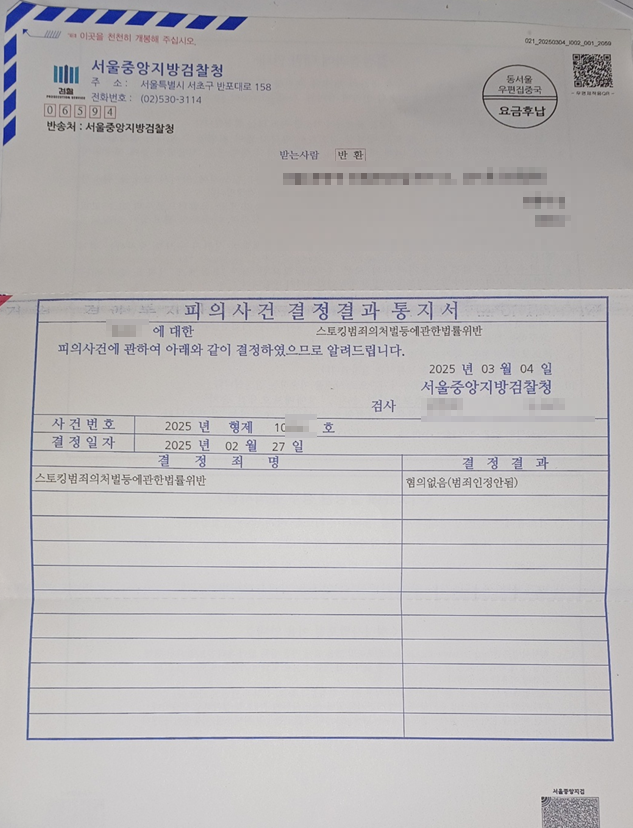 이곳을 천천히 개봉해 주십시오.
021_20250304_i002_001_2059
서울중앙지방검찰청
주 소 : 서울특별시 서초구 반포대로 158
전화번호 : (02)530-3114
검찰
PROSECUTION SERVICE
06594
반송처 : 서울중앙지방검찰청
동서울
우편집중국
요금후납
받는사람 반 환
피의사건 결정결과 통지서
에 대한 스토킹범죄의처벌등에관한법률위반
피의사건에 관하여 아래와 같이 결정하였으므로 알려드립니다.
2025 년 03 월 04 일
서울중앙지방검찰청
검사
사 건 번 호 2025 년 형제 10 호
결 정 일 자 2025 년 02 월 27 일
결 정 죄 명 결 정 결 과
스토킹범죄의처벌등에관한법률위반 혐의없음(범죄인정안됨)
서울중앙지검